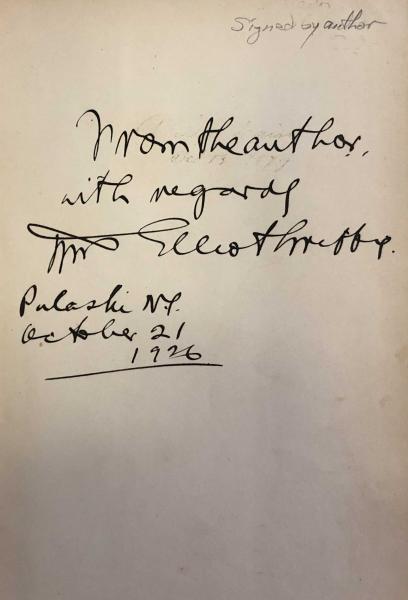 Signed by author
From the author,
with regards
Wm Elliot Griffis.
Pulaski N.Y.
October 21
1926